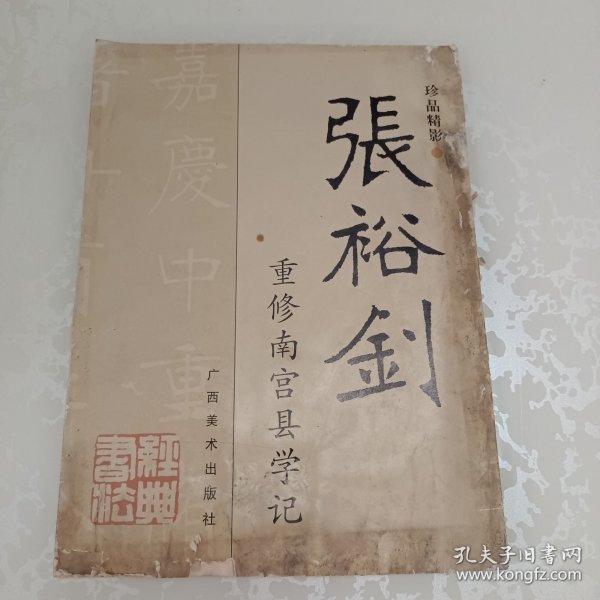 珍品精影
張裕釗
重修南宫县学记
广西美术出版社
嘉慶中重
經典
書法
孔夫子旧书网
www.kongfz.com